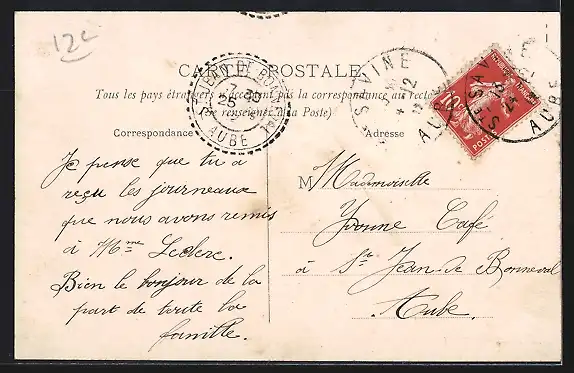 12c
CARTE POSTALE
Tous les pays étrangers n'acceptent pas la correspondance au recto
(Se renseigner à la Poste)
Correspondance
Adresse
STE SAVINE
AUBE
AUBE
AUBE
10
POSTES
Je pense que tu a
reçu les journeaux
que nous avons remis
à Mme Leclerc.
Bien le bonjour de la
part de toute la
famille.
M Mademoiselle
Yvonne Café
à St Jean de Bonneval
Aube.